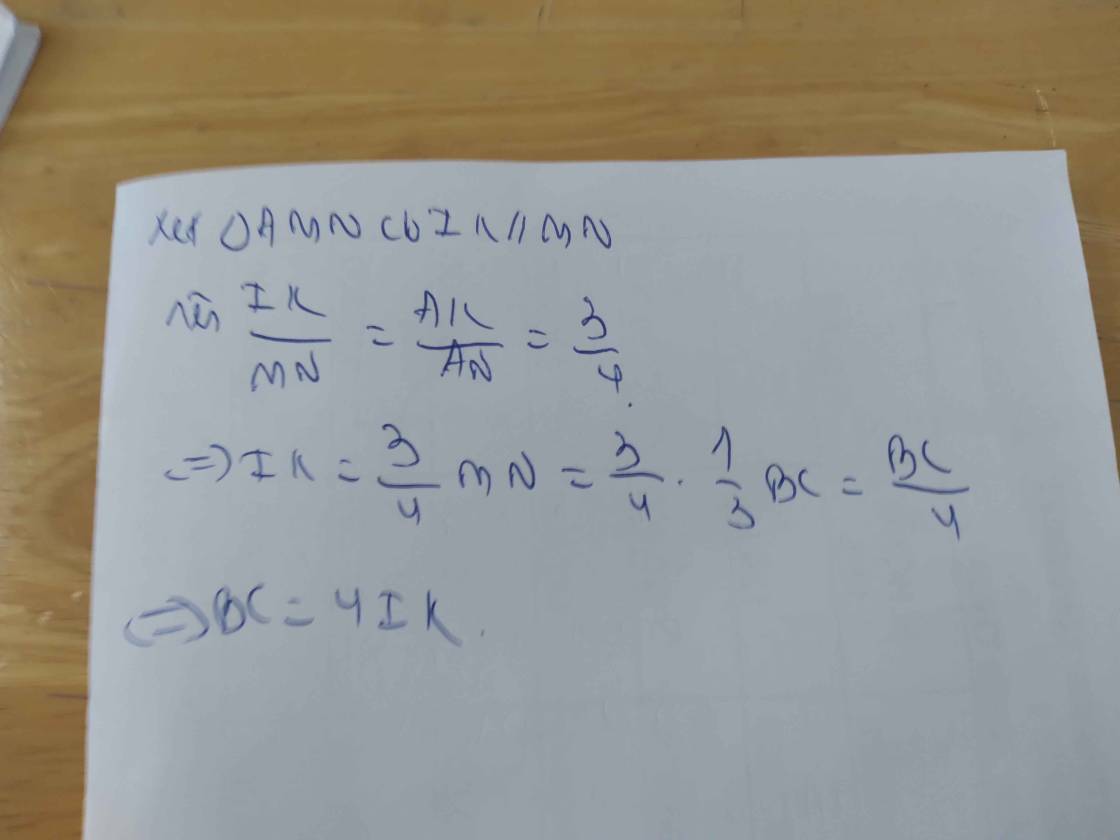 xét △AMN có IK//MN
nên IK/MN = AK/AN = 3/4.
=> IK = 3/4 MN = 3/4 . 1/3 BC = BC/4
<=> BC = 4IK.